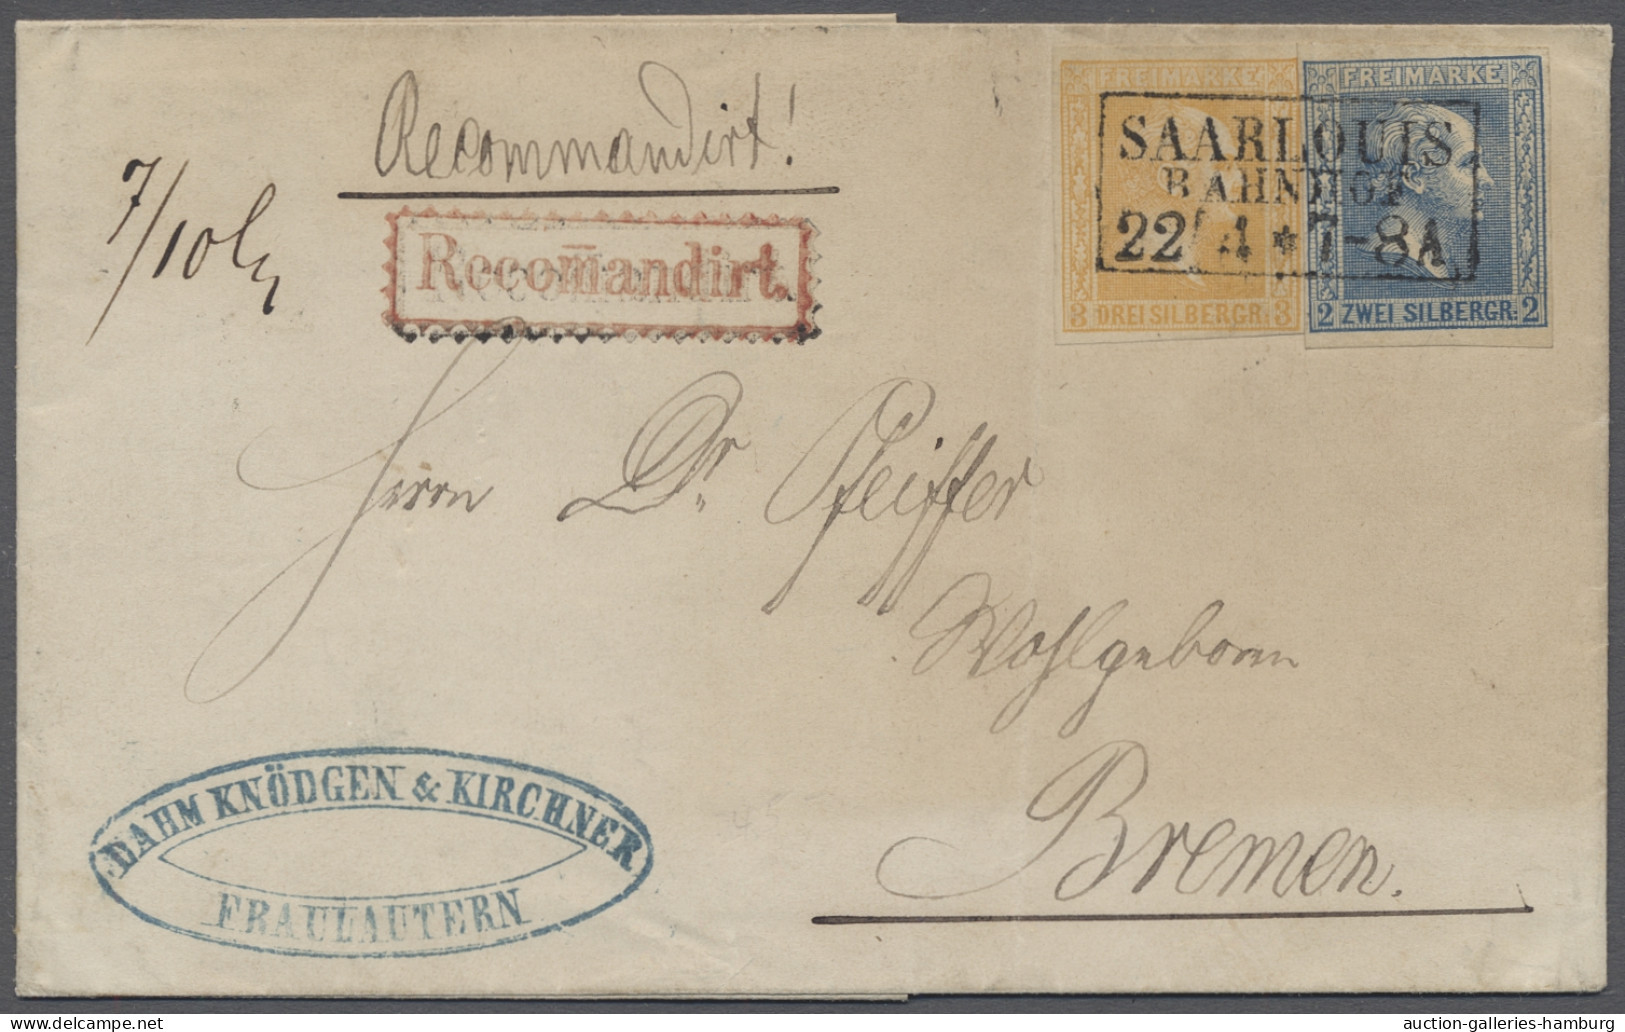 Recommandirt!
7/10
Recom̄andirt.
FREIMARKE
3 DREI SILBERGR: 3
FREIMARKE
2 ZWEI SILBERGR: 2
SAARLOUIS
BAHNHOF
22 4 * 7-8A
Herrn Dr. Pfeiffer
Wohlgeboren
Bremen.
DAHM KNÖDGEN & KIRCHNER
FRAULAUTERN
auction-galleries-hamburg